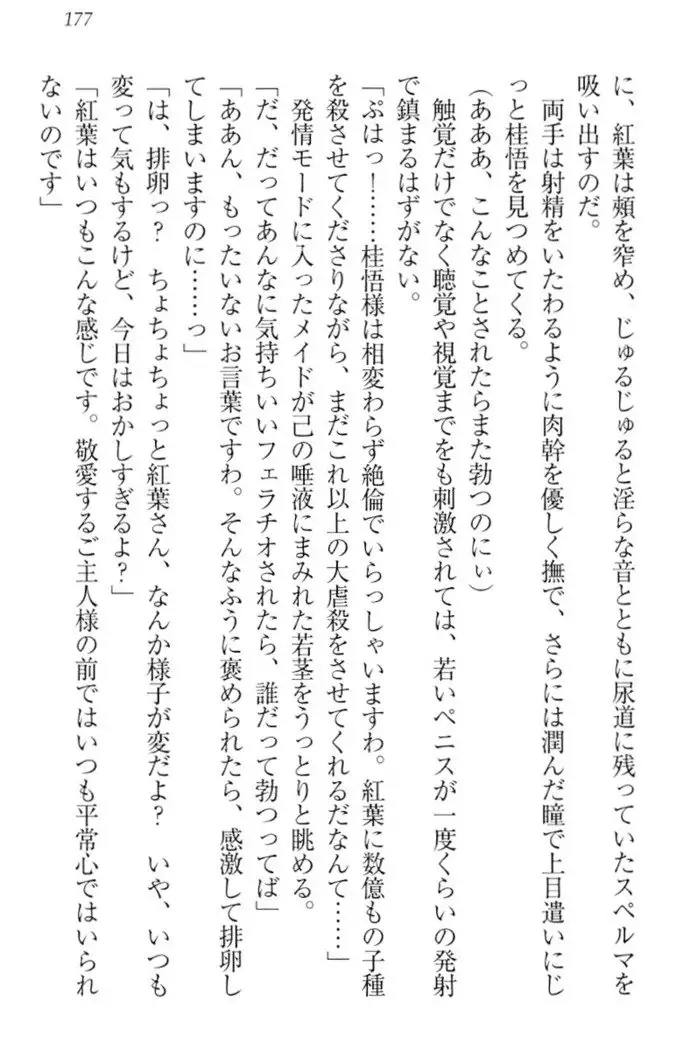 177
に、紅葉は頬を窄め、じゅるじゅると淫らな音とともに尿道に残っていたスペルマを
吸い出すのだ。
両手は射精をいたわるように肉幹を優しく撫で、さらには潤んだ瞳で上目遣いにじ
っと桂悟を見つめてくる。
(あああ、こんなことされたらまた勃つのにぃ)
触覚だけでなく聴覚や視覚までをも刺激されては、若いペニスが一度くらいの発射
で鎮まるはずがない。
「ぷはっ！……桂悟様は相変わらず絶倫でいらっしゃいますわ。紅葉に数億もの子種
を殺させてくださりながら、まだこれ以上の大虐殺をさせてくれるだなんて……」
発情モードに入ったメイドが己の唾液にまみれた若茎をうっとりと眺める。
「だ、だってあんなに気持ちいいフェラチオされたら、誰だって勃つってば」
「ああん、もったいないお言葉ですわ。そんなふうに褒められたら、感激して排卵し
てしまいますのに……っ」
「は、排卵っ？　ちょちょちょっと紅葉さん、なんか様子が変だよ？　いや、いつも
変って気もするけど、今日はおかしすぎるよ？」
「紅葉はいつもこんな感じです。敬愛するご主人様の前ではいつも平常心ではいられ
ないのです」